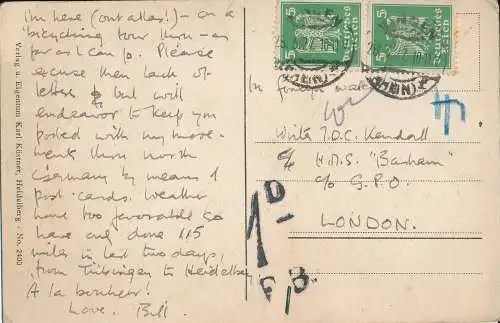 I'm here (out alley!) - on a
bicycling tour thru - as
far as I can go. Please
excuse then lack of
letters & but will
endeavor to keep you
posted with my move-
ments thru north
Germany by means of
post-cards. Weather
have too favorable so
have only done 115
miles in last two days,
from Tübingen to Heidelberg
A la bonheur!
Love. Bill.
Verlag u. Eigentum Karl Küstner, Heidelberg - No. 2400
5 Deutsches Reich 5
5 Deutsches Reich 5
In foreign
Writer J.O.C. Kendall
c/o H.M.S. "Barham"
c/o G.P.O.
LONDON.
1D